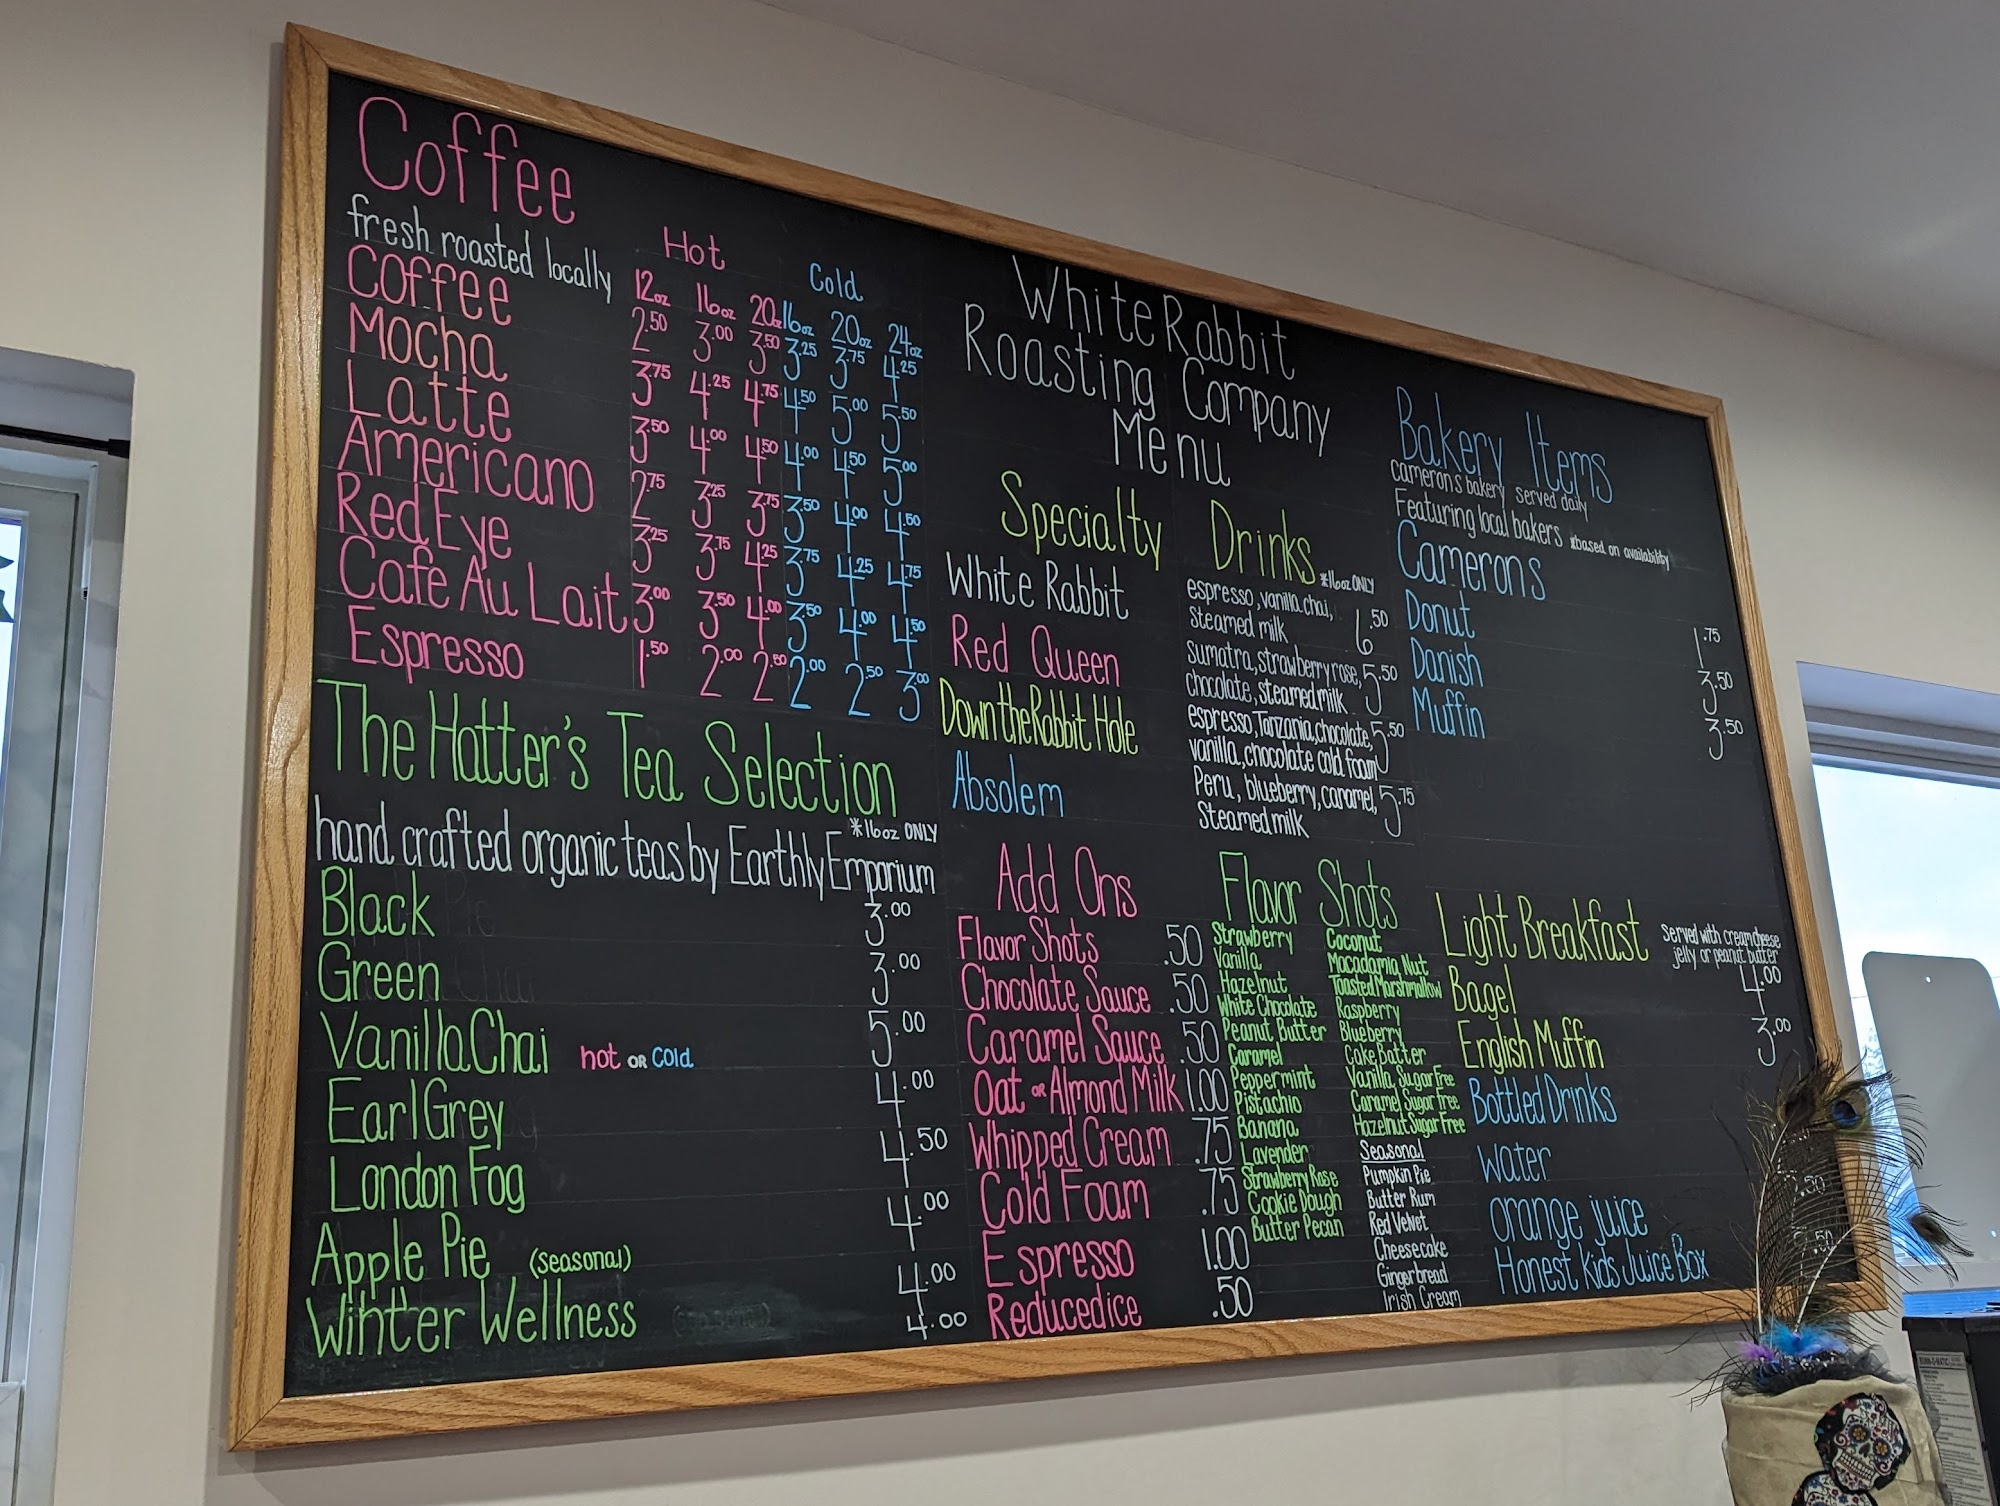 Coffee
fresh roasted locally
Hot
Cold
12oz 16oz 20oz 16oz 20oz 24oz
Coffee 2.50 3.00 3.50 3.25 3.75 4.25
Mocha 3.75 4.25 4.75 4.50 5.00 5.50
Latte 3.50 4.00 4.50 4.00 4.50 5.00
Americano 2.75 3.25 3.75 3.50 4.00 4.50
Red Eye 3.25 3.75 4.25 3.75 4.25 4.75
Cafe Au Lait 3.00 3.50 4.00 3.50 4.00 4.50
Espresso 1.50 2.00 2.50 2.00 2.50 3.00
The Hatter's Tea Selection
*16oz ONLY
hand crafted organic teas by Earthly Emporium
Black 3.00
Green 3.00
Vanilla Chai hot OR cold 5.00
Earl Grey 4.00
London Fog 4.50
Apple Pie (seasonal) 4.00
Winter Wellness 4.00
4.00
White Rabbit
Roasting Company
Menu
Specialty Drinks *16oz ONLY
White Rabbit espresso, vanilla chai,
Steamed milk 6.50
Red Queen sumatra, strawberry rose,
chocolate, steamed milk 5.50
Down the Rabbit Hole espresso, Tanzania, chocolate,
vanilla, chocolate cold foam 5.50
Absolem Peru, blueberry, caramel,
Steamed milk 5.75
Add Ons
Flavor Shots .50
Chocolate Sauce .50
Caramel Sauce .50
Oat OR Almond Milk 1.00
Whipped Cream .75
Cold Foam .75
Espresso 1.00
Reduced ice .50
Flavor Shots
Strawberry
Vanilla
Hazelnut
White Chocolate
Peanut Butter
Caramel
Peppermint
Pistachio
Banana
Lavender
Strawberry Rose
Cookie Dough
Butter Pecan
Coconut
Macadamia Nut
Toasted Marshmallow
Raspberry
Blueberry
Cake Batter
Vanilla Sugar Free
Caramel Sugar Free
Hazelnut Sugar Free
Seasonal
Pumpkin Pie
Butter Rum
Red Velvet
Cheesecake
Gingerbread
Irish Cream
Bakery Items
Cameron's bakery served daily
Featuring local bakers *based on availability
Camerons
Donut 1.75
Danish 3.50
Muffin 3.50
Light Breakfast Served with creamcheese
jelly or peanut butter
Bagel 4.00
English Muffin 3.00
Bottled Drinks
Water
orange juice
Honest Kids Juice Box